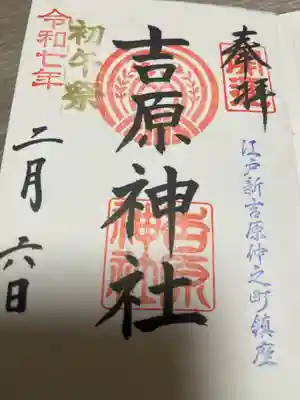 奉拝
江戸新吉原仲之町鎮座
吉原神社
吉原神社
初午祭
令和七年
二月六日